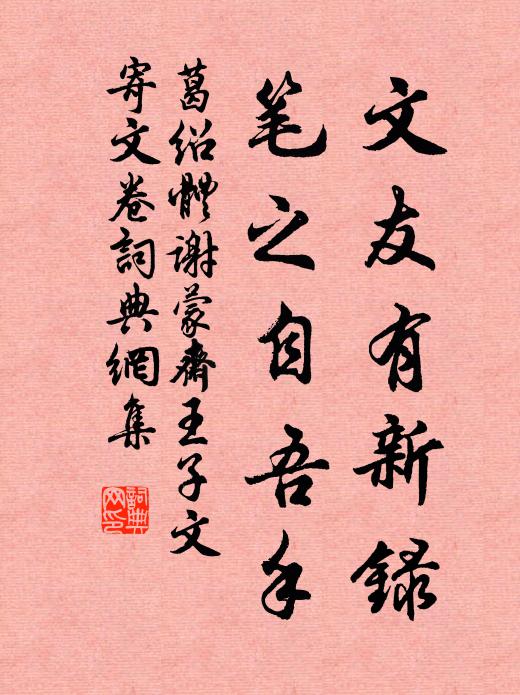 文友有新録
笔之自吾手
葛绍體谢蒙齋王子文
寄文卷詞典網集
詞典网印